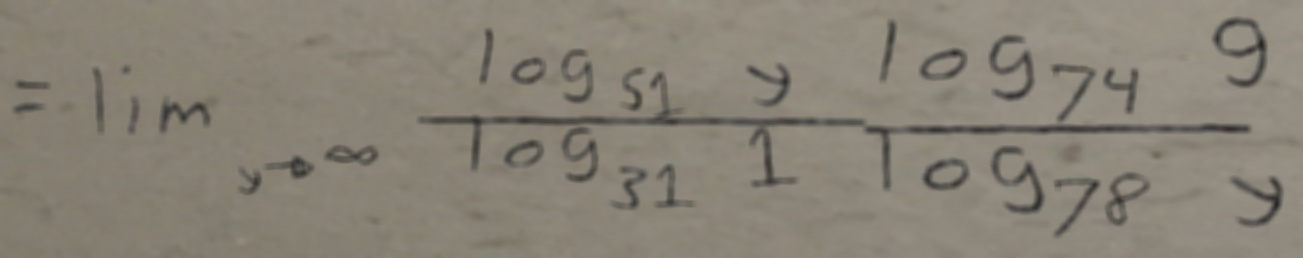 = lim_{y→∞} \frac{log_{51} y}{log_{31} 1} \frac{log_{74} 9}{log_{78} y}